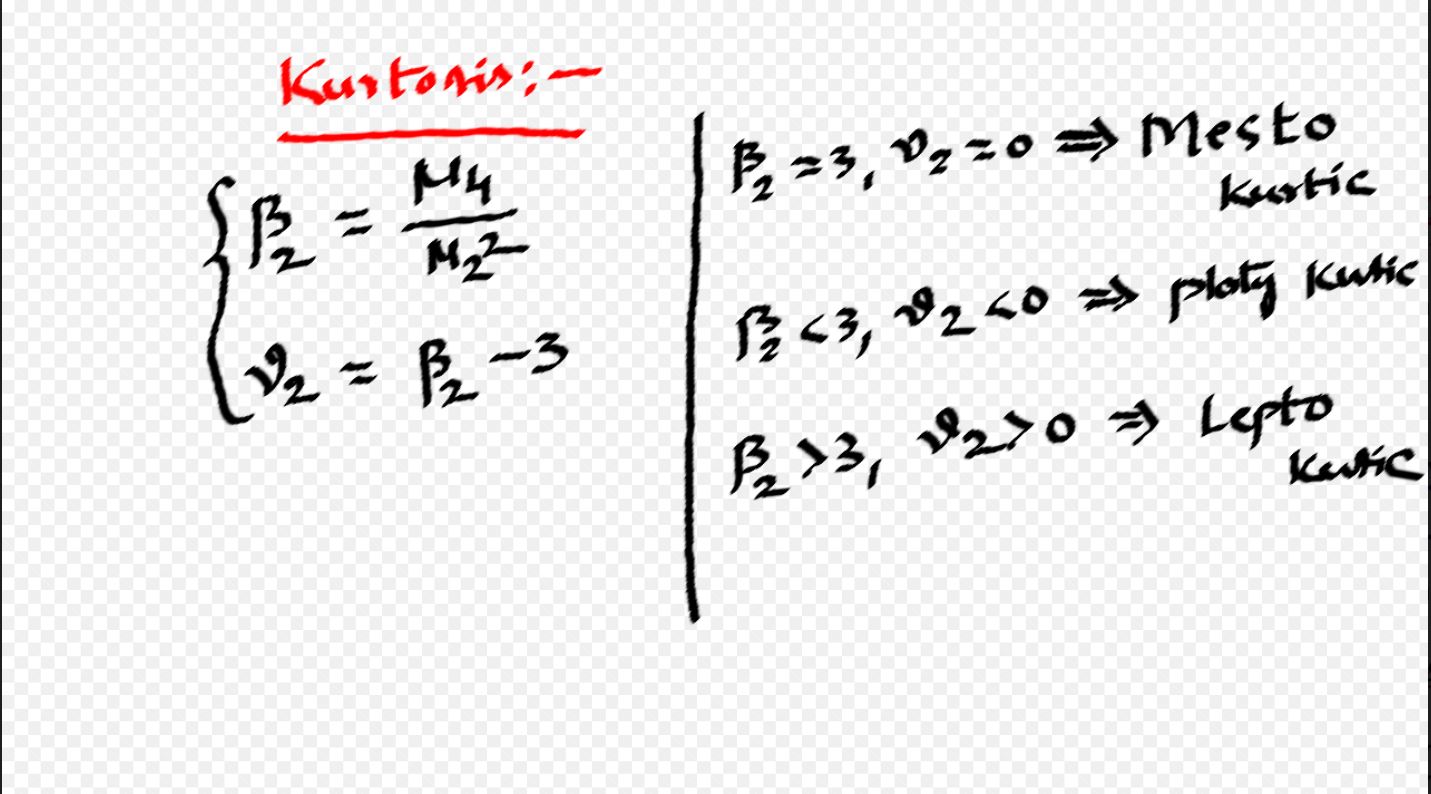 Kurtosis:-
β₂ = μ₄ / μ₂²
ϑ₂ = β₂ - 3
β₂ = 3, ϑ₂ = 0 ⇒ Mesto
kurtic
β₂ < 3, ϑ₂ < 0 ⇒ ploty kutic
β₂ > 3, ϑ₂ > 0 ⇒ Lepto
kutic